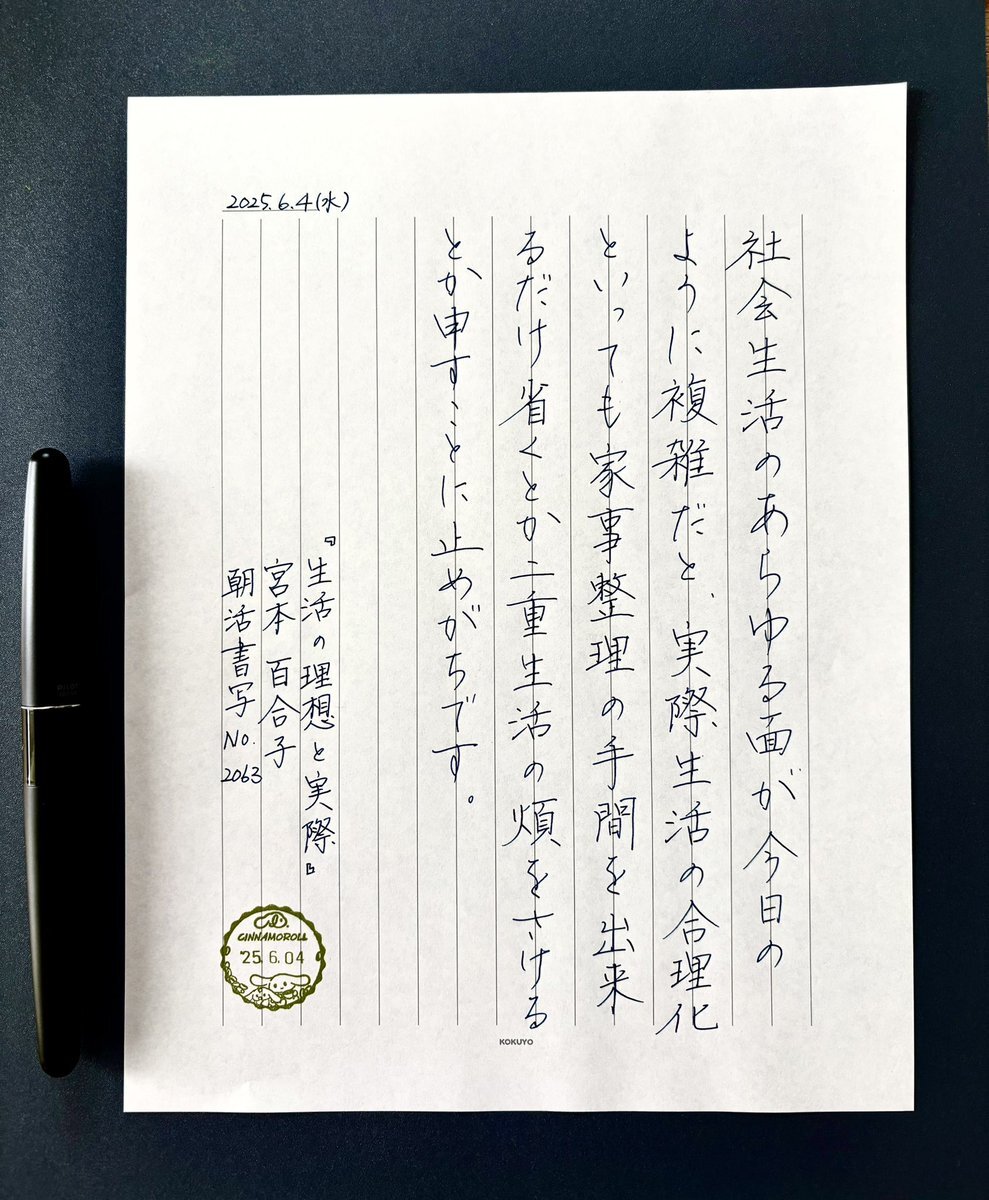 2025.6.4(水)
社会生活のあらゆる面が今日の
ように複雑だと、実際生活の合理化
といっても家事整理の手間を出来
るだけ省くとか二重生活の煩をさける
とか申すことに止めがちです。
『生活の理想と実際』
宮本 百合子
朝活書写No.2063
CINNAMOROLL
'25.6.04
KOKUYO